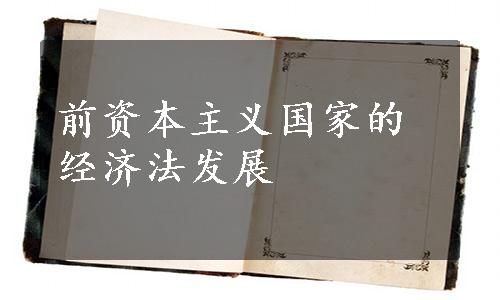 前资本主义国家的
经济法发展